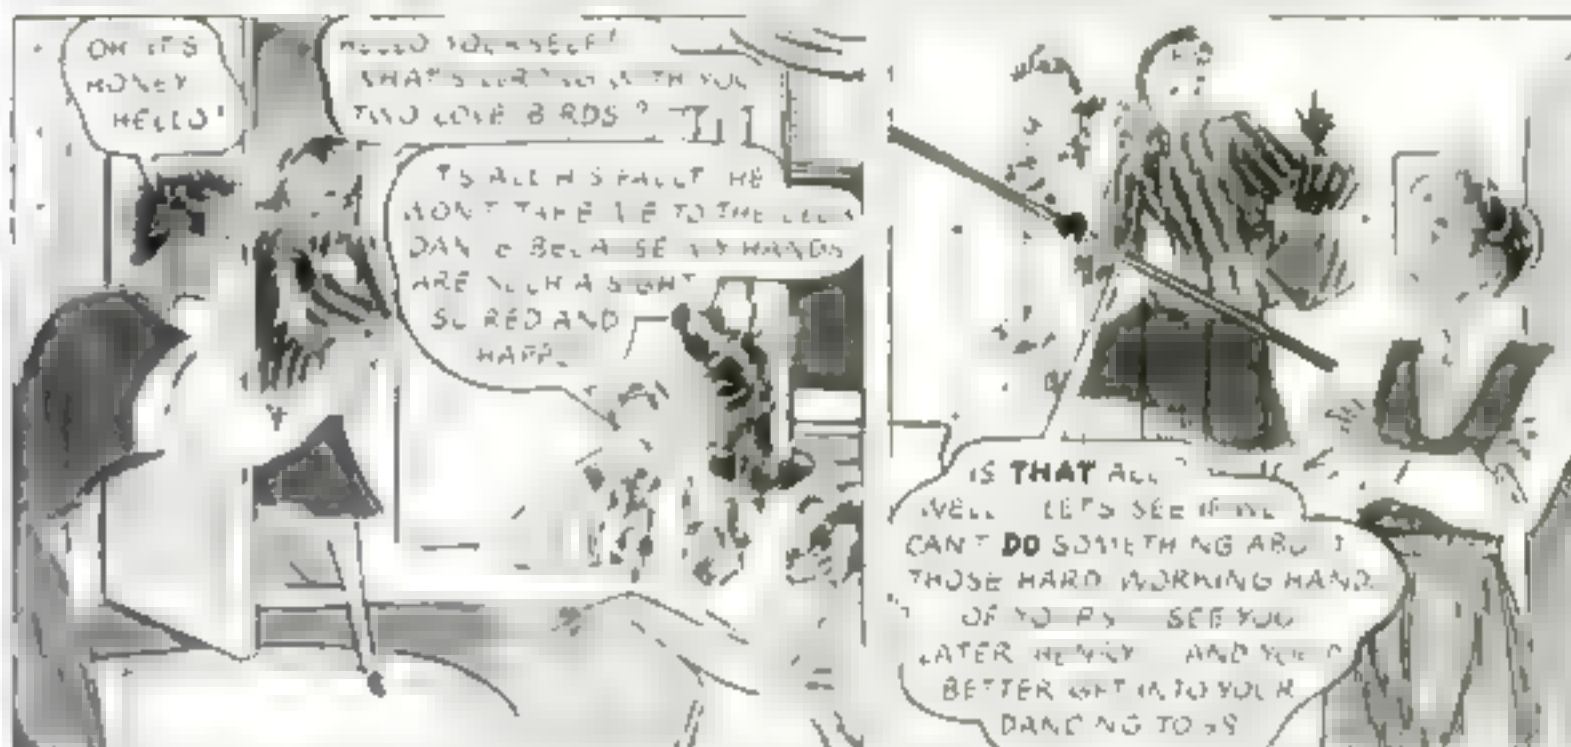 OH IT'S
HONEY
HELLO!
HELLO YOURSELF!
WHAT'S WRONG WITH YOU
TWO LOVE BIRDS?
IT'S ALL HIS FAULT HE
WON'T TAKE ME TO THE CLUB
DANCE BECAUSE MY HANDS
ARE SUCH A SIGHT
SO RED AND
IS THAT ALL
WELL LET'S SEE IF WE
CAN'T DO SOMETHING ABOUT
THOSE HARD WORKING HANDS
OF YOURS SEE YOU
LATER HENRY AND YOU'D
BETTER GET INTO YOUR
DANCING TOGS